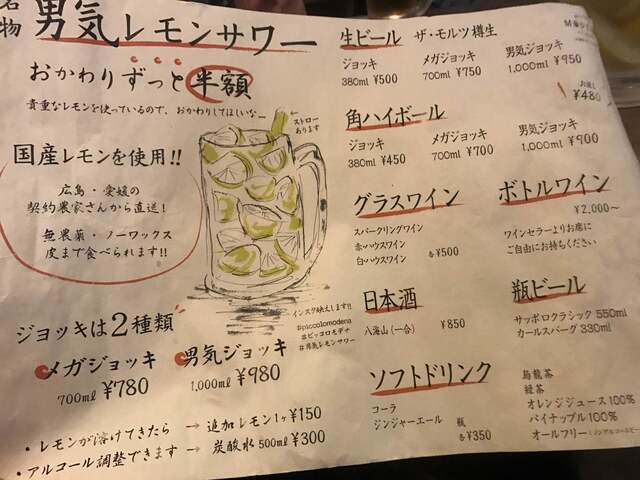 名物 男気レモンサワー
おかわりずっと半額
貴重なレモンを使っているので、おかわりしてほしいなー
ストロー
あります
国産レモンを使用!!
広島・愛媛の
契約農家さんから直送!
無農薬・ノーワックス
皮まで食べられます!!
インスタ映えします!!
#piccolomodena
#ピッコロモデナ
#男気レモンサワー
ジョッキは2種類
メガジョッキ
700ml ¥780
男気ジョッキ
1,000ml ¥980
・レモンが溶けてきたら → 追加レモン1ヶ¥150
・アルコール調整できます → 炭酸水500ml ¥300
生ビール ザ・モルツ樽生
ジョッキ
380ml ¥500
メガジョッキ
700ml ¥750
男気ジョッキ
1,000ml ¥950
¥480
角ハイボール
ジョッキ
380ml ¥450
メガジョッキ
700ml ¥700
男気ジョッキ
1,000ml ¥900
グラスワイン
スパークリングワイン
赤ハウスワイン
白ハウスワイン 各¥500
ボトルワイン
¥2,000〜
ワインセラーよりお席に
ご自由にお持ちください
日本酒
八海山(一合) ¥850
瓶ビール
サッポロクラシック 550ml
カールスバーグ 330ml
ソフトドリンク
コーラ
ジンジャーエール
瓶
各¥350
烏龍茶
緑茶
オレンジジュース100%
パイナップル100%
オールフリー